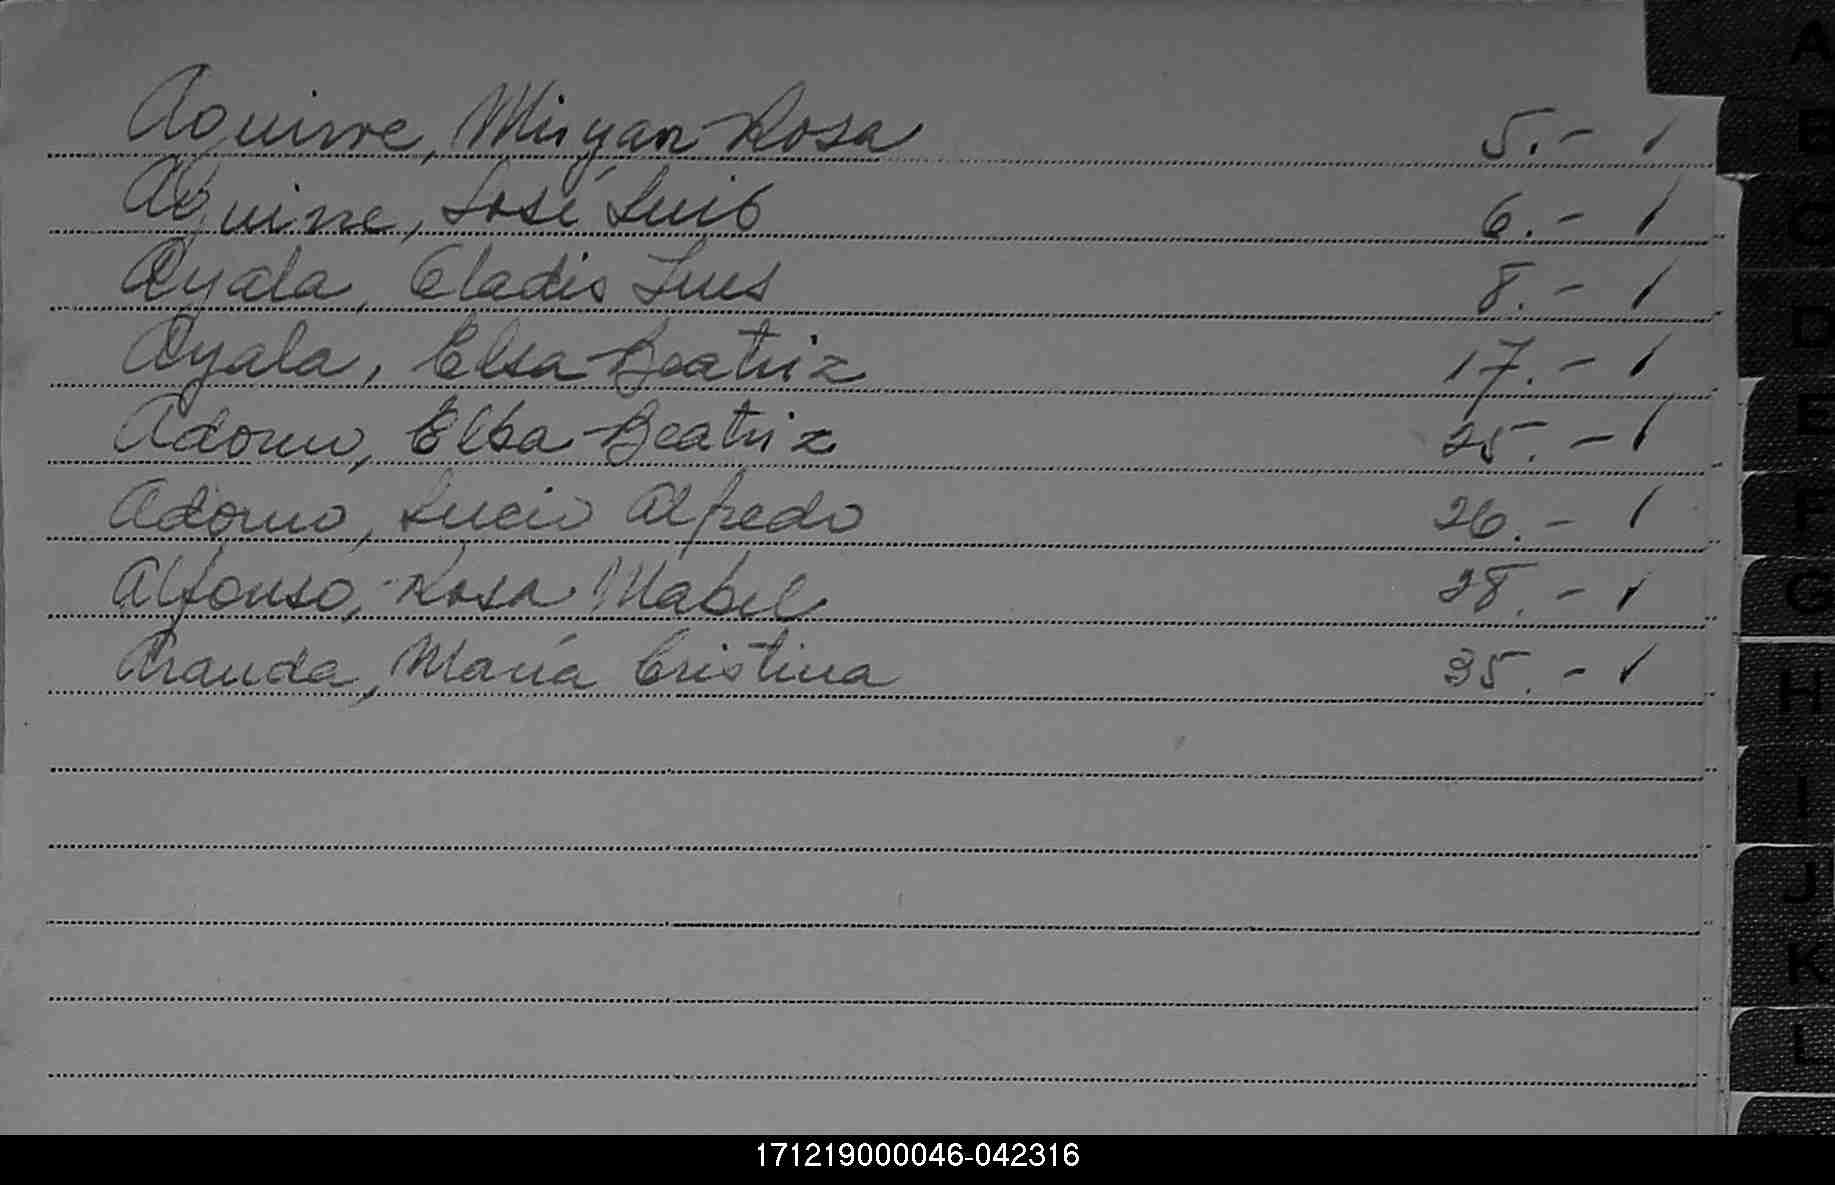 Aguirre, Miryan Rosa 5.-
Aguirre, José Luis 6.-
Ayala, Eladis Luis 8.-
Ayala, Elsa Beatriz 17.-
Adorno, Elba Beatriz 25.-
Adorno, Lucio Alfredo 26.-
Alfonso, Rosa Mabel 28.-
Aranda, María Cristina 35.-
A
B
C
D
E
F
G
H
I
J
K
L
171219000046-042316